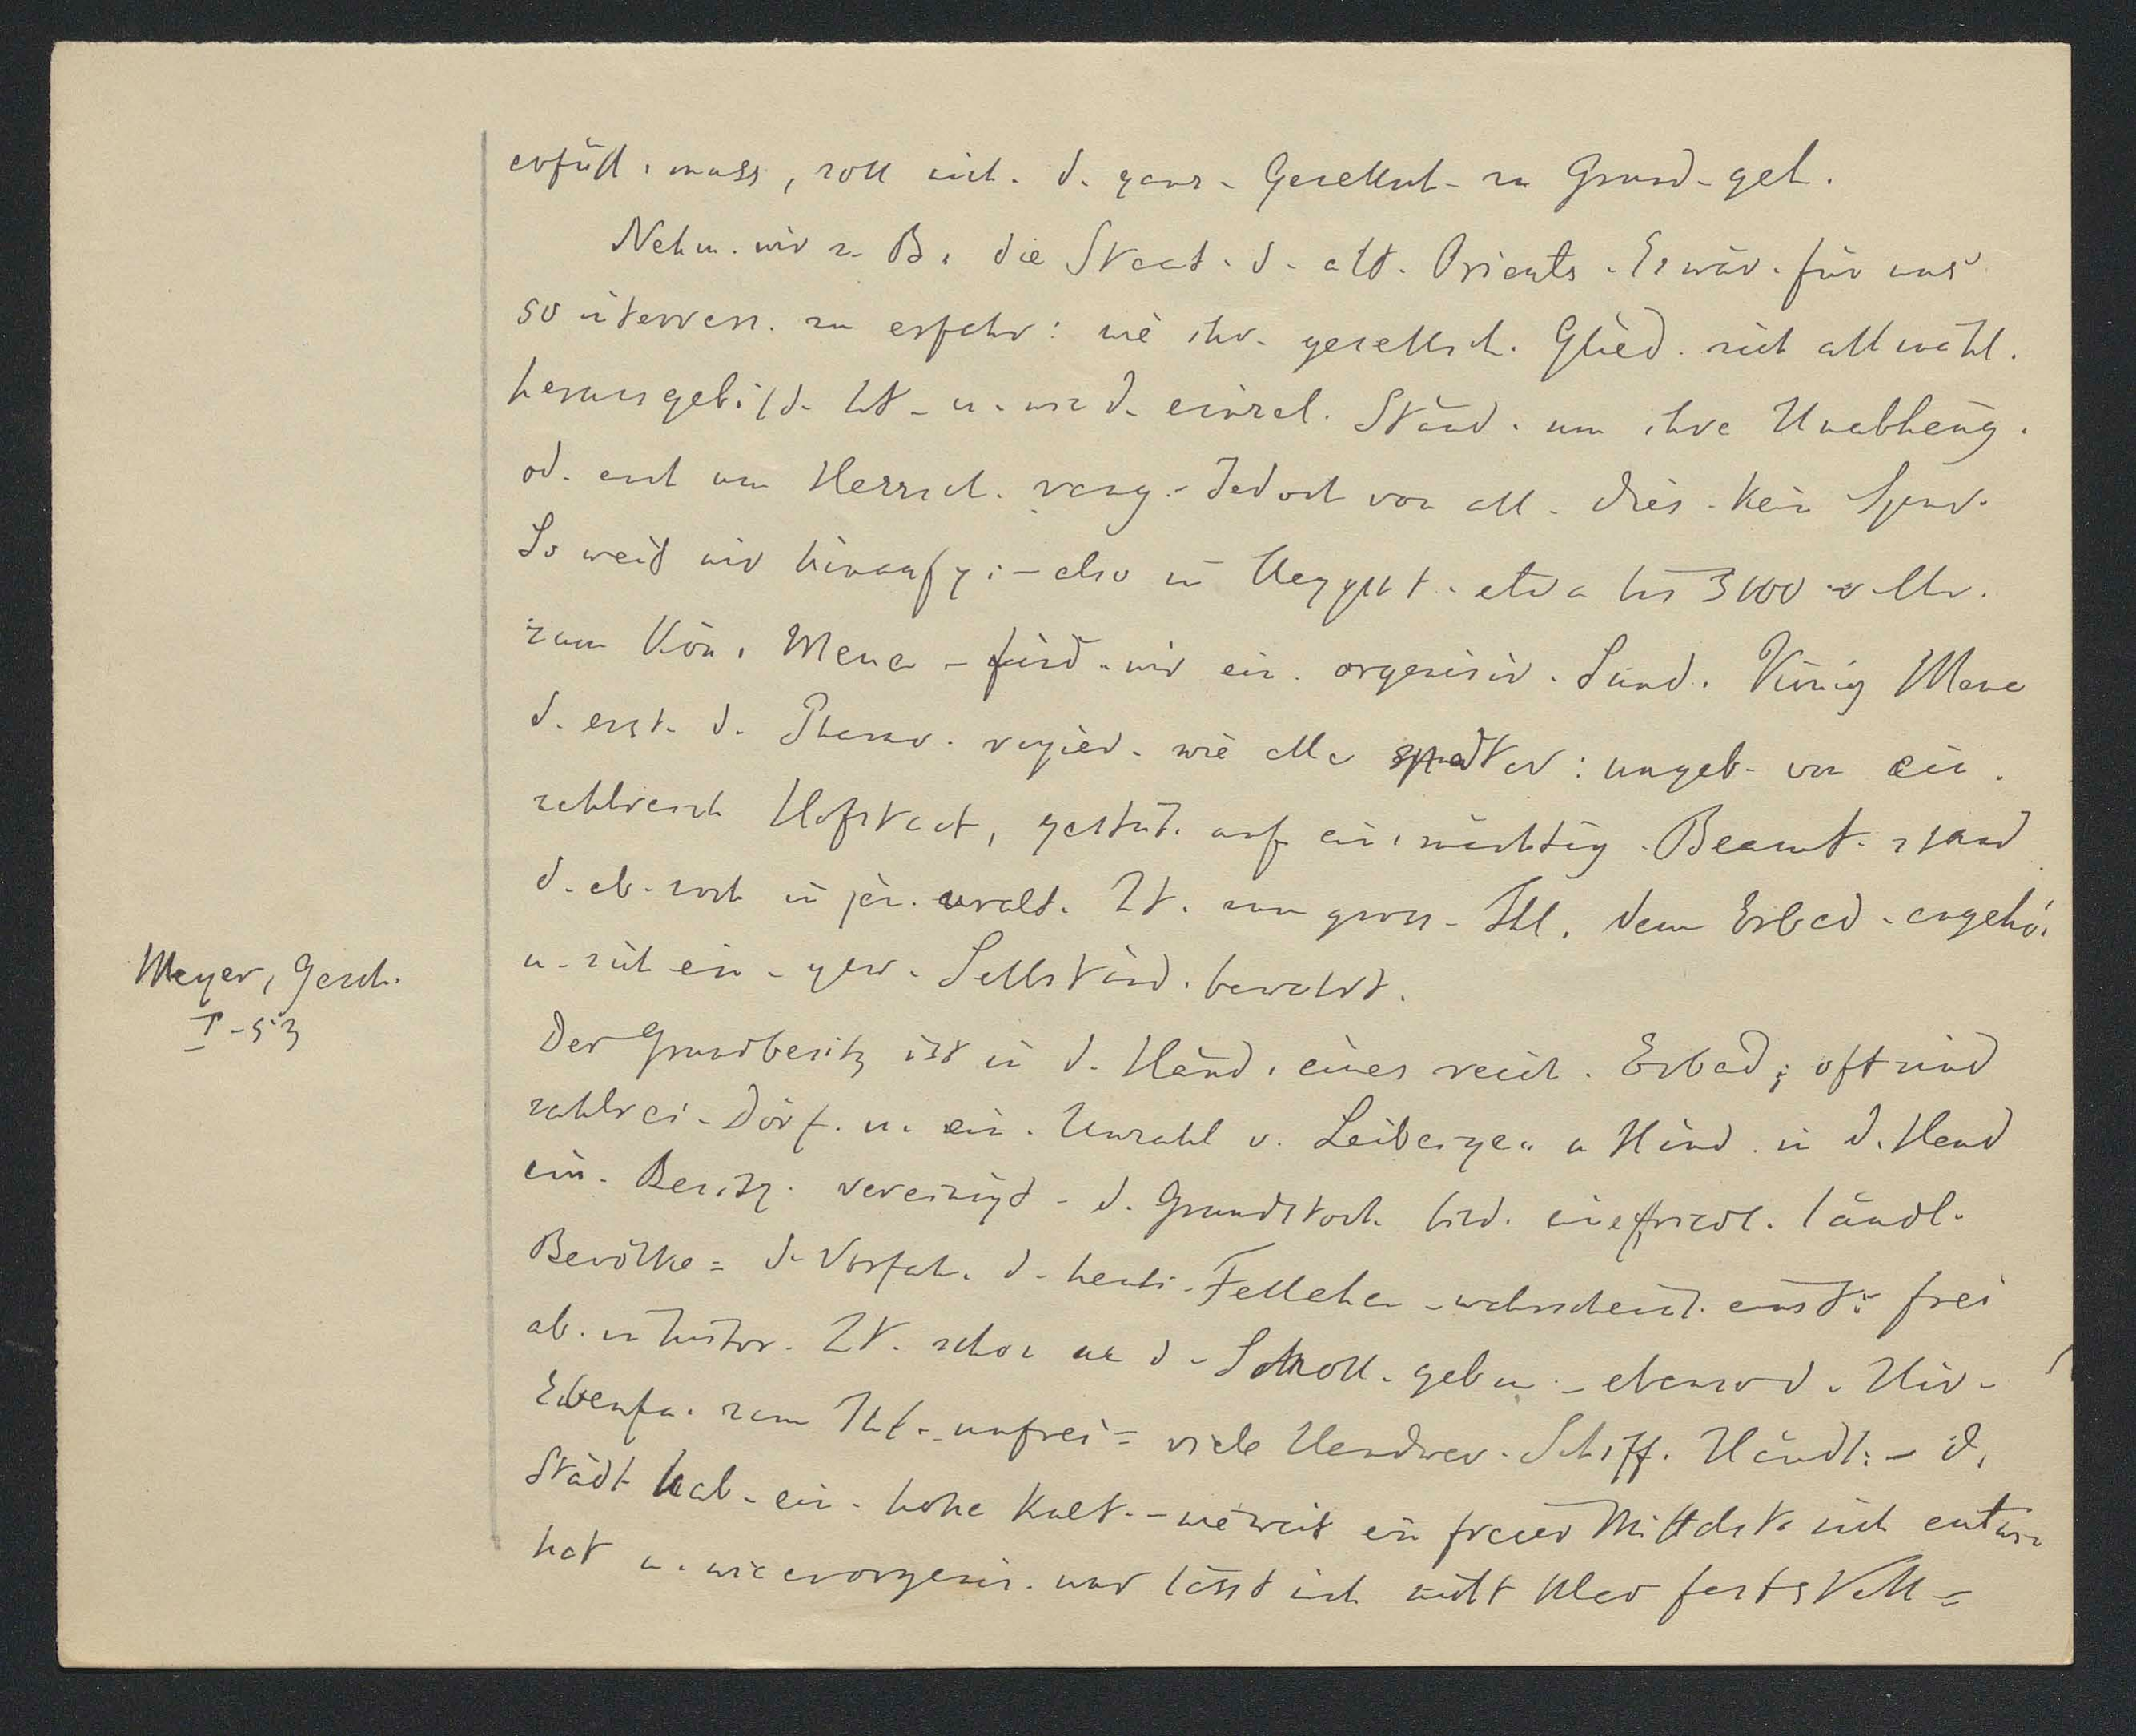 erfüll. muss, soll nicht. d. ganz. Gesellsch. zu Grund. geh.
Nehm. wir z. B. die Staat. d. alt. Orients. Es wär. für uns
so interress. zu erfahr: wie ihr. gesellsch. Glied. sich allmähl.
herausgebild. ht. u. wie d. einzel. Ständ. um ihre Unabhäng.
od. auch um Herrsch. rang. Jedoch von all. dies. kein Spur.
So weit wir hinaufg: – also in Aegypt. etwa bis 3000 v Chr.
zum Kön. Mena – find. wir ein. organisir. Land. König Mena
d. erst. d. Pharao. regier. wie alle später: umgeb. von ein.
zahlreich Hofstaat, gestüt. auf ein. mächtig. Beamt. stand
d. ab. noch in jen. uralt. Zt. zum gross. Thl. dem Erbad. angehö.
u. sich ein. gew. Selbständ. bewahrt.
Meyer, Gesch.
I – 53
Der Grundbesitz ist in d. Händ. eines reich. Erbad; oft sind
zahlrei. Dörf. u. ein. Unzahl v. Leibeigen u Rind. in d. Hand
ein. Besitz. vereinigt – d. Grundstock bild. eine friedl. ländl.
Bevölke = d. Vorfah. d. heuti. Fellahen – wahrscheinl. einst: frei
ab. in histor. Zt. schon an d. Scholl. gebun – ebenso d. Hir.
Ebenfa. zum Thl. unfrei = viele Handwer. Schiff. Händl: – d.
Städt hab. ein. hohe Kult. – wieweit ein freier Mittelst. sich entwi
hat u. wie er organis. war lässt sich nicht klar festst​ell =